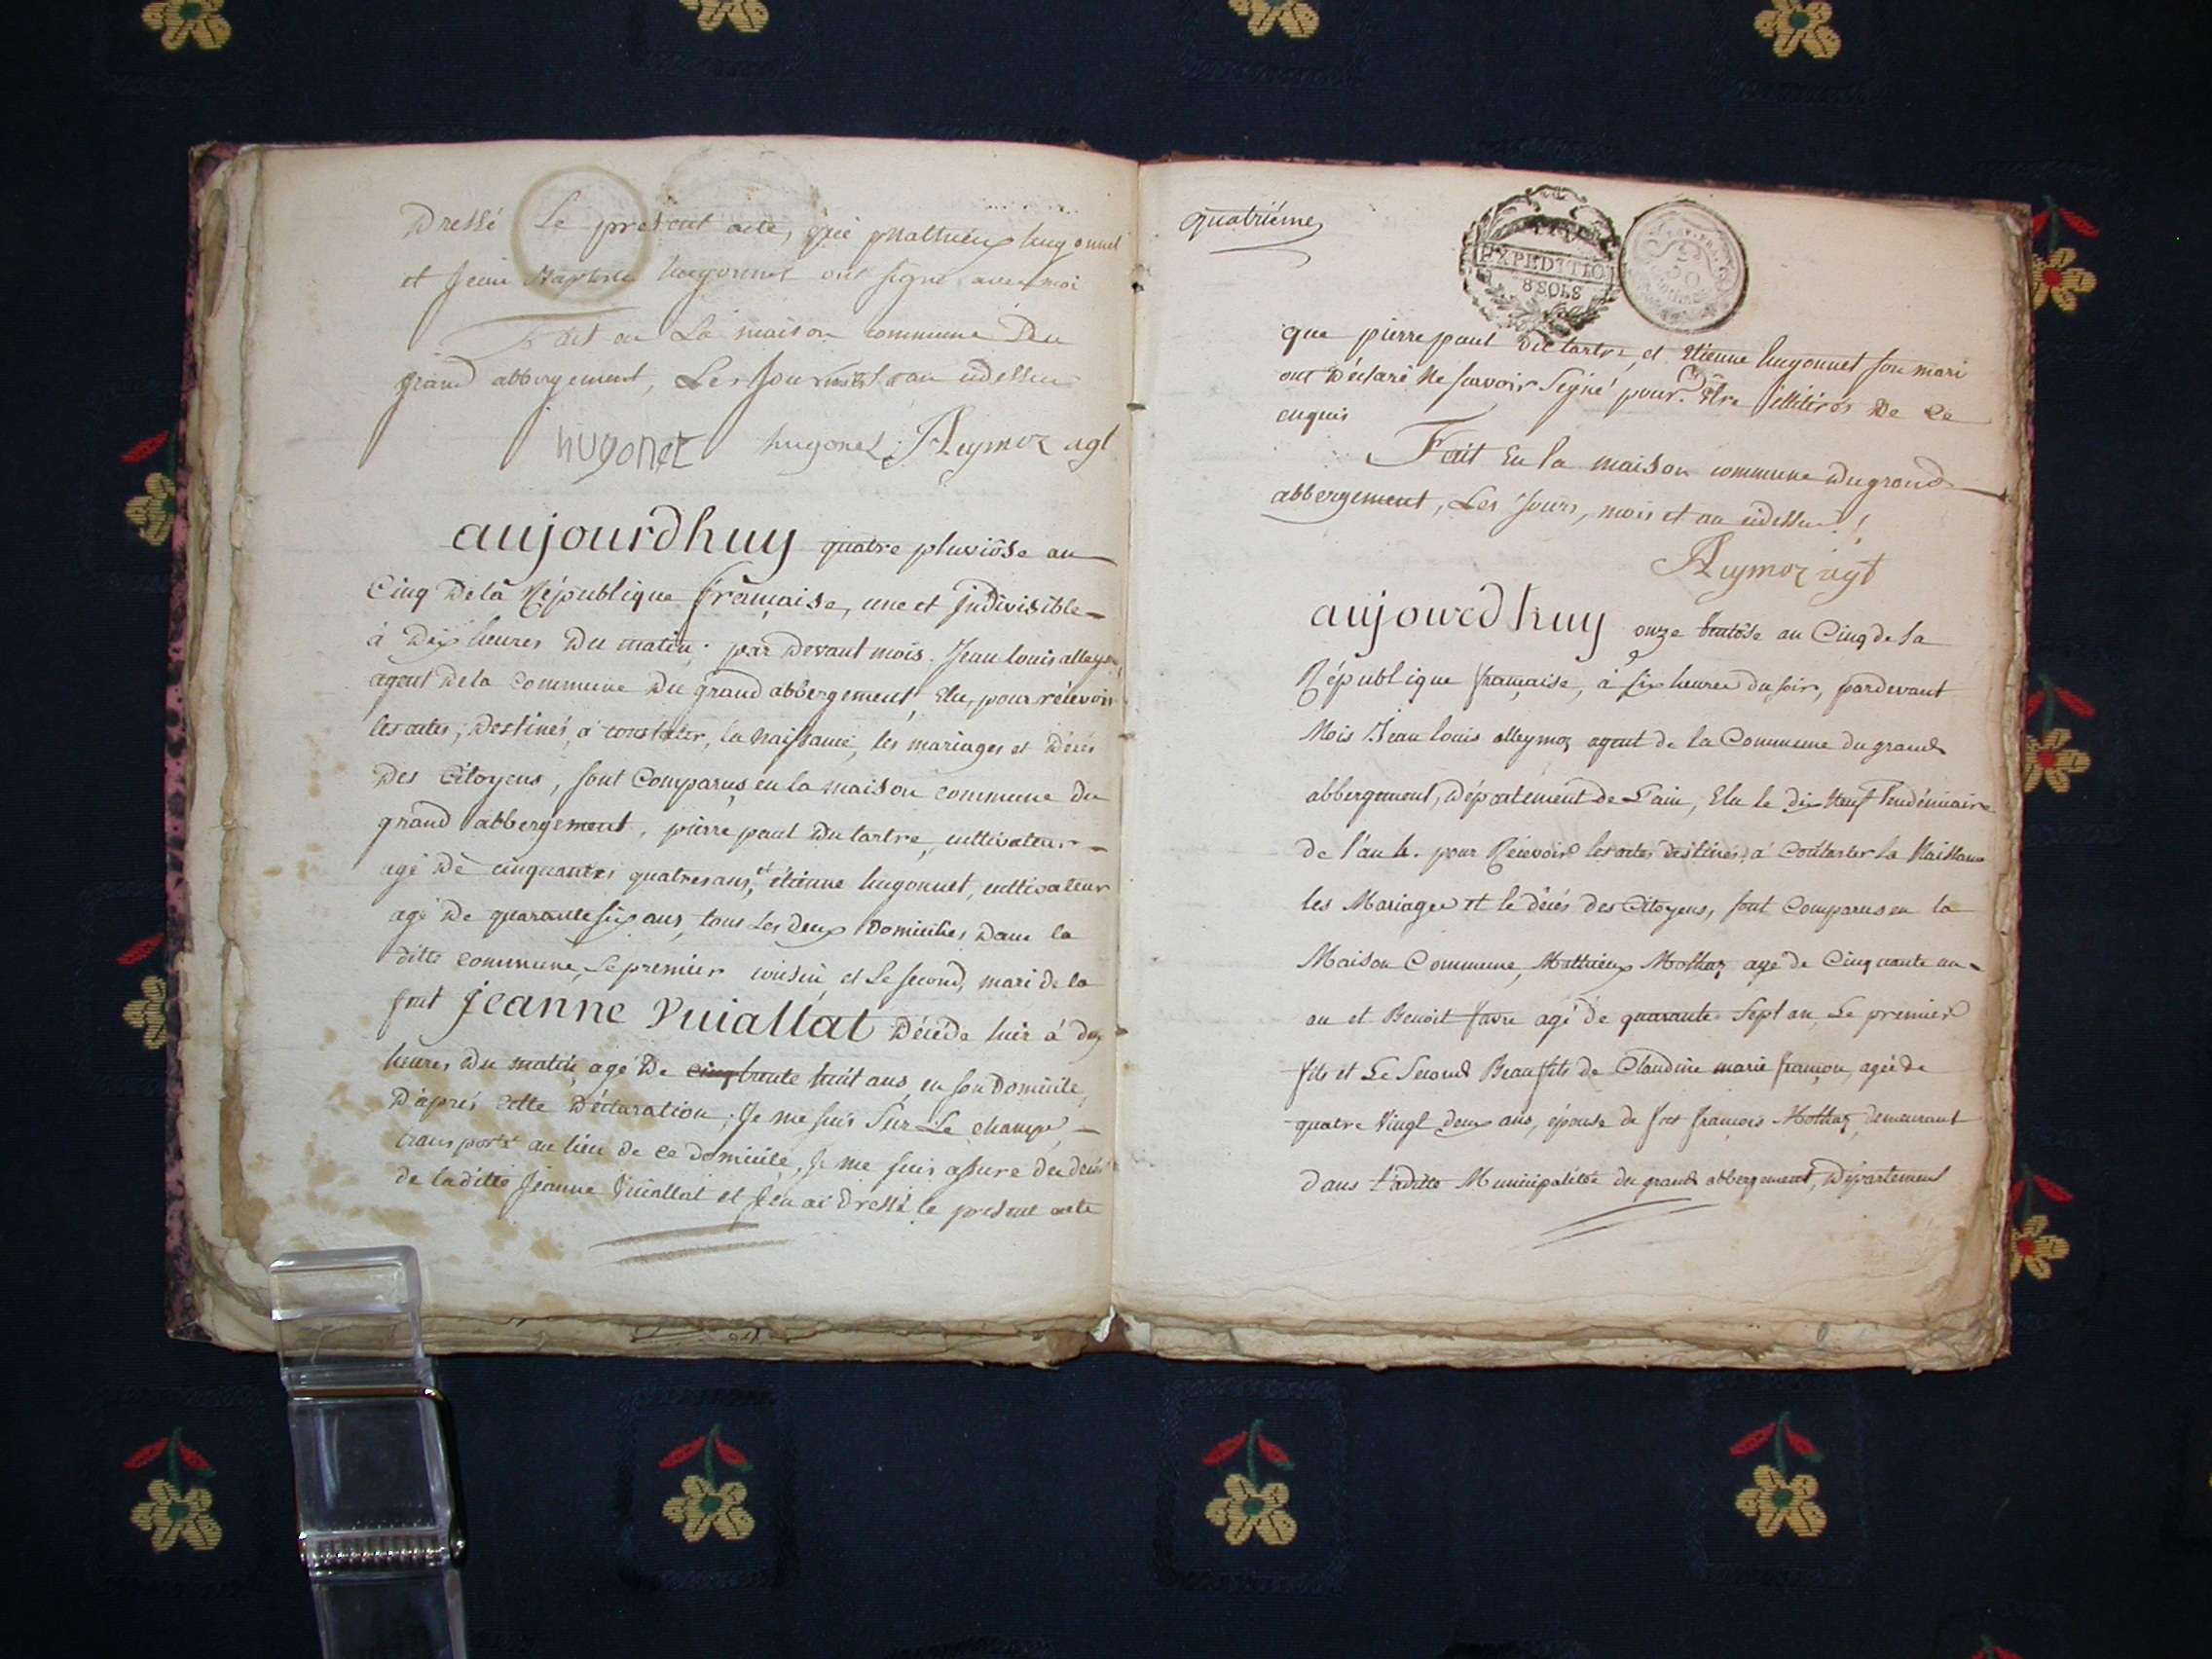 Dressé Le present acte, que Mathieu hugonnet
et Jean Baptiste hugonnet ont signé avec moi
Fait en La maison commune Du
grand abbergement, Les Jour mois et an cidessus
hugonet hugonet Alleymoz agt
aujourdhuy quatre pluviôse an
Cinq De la République française, une et indivisible
à Dix heures Du matin par Devant mois Jean louis alleymoz
agent De la Commune Du grand abbergement, Elu, pour récevoir
les actes, Destinés, à constater, la Naissance, les mariages et Décés
Des Citoyens, sont Comparus en la maison commune du
grand abbergement, pierre paul Du tartre, cultivateur
agé De cinquantes quatres ans, et étienne hugonnet, cultivateur
agé De quarante six ans, tous Les deux Domiciliés Dans la
ditte commune, Le premier voisin, et Le second, mari de la
fut Jeanne Vuiallat Décéde hier à dix
heures Du matin, agé De trente huit ans, en son Domicile,
D'aprés cette Déclaration, Je me suis Sur Le champs
transporté au lieu de ce Domicile, Je me suis assuré du décés
de laditte Jeanne Vuiallat et J'en ai Dressé le present acte
quatriéme
EXPEDITIO
8 SOLS
50
que pierre paul Du tartre, et Etienne hugonnet son mari
ont Déclaré Ne savoir Signé pour Etre illitéros De Ce
enquis
Fait En la maison commune Du grand
abbergement, Les Jours, mois et an cidessus !
Alleymoz agt
aujourdhuy onze Ventôse an Cinq de la
République française, à six heures du soir, pardevant
Mois Jean louis alleymoz agent de la Commune du grand
abbergement, Département de L'ain, Elu le dix Neuf Vendémiaire
de l'an 4. pour Récevoir les actes destinés à Constater la Naissance
les Mariages et le décés des Citoyens, sont Comparus en la
Maison Commune, Mathieux Mothaz agé de Cinquante un
an et Benoit favre agé de quarante Sept an Le premier
fils et Le Second Beau fils de Claudine marie françon, agée de
quatre Vingt deux ans, épouse de fut françois Mothaz, demeurant
dans Laditte Municipalitée du grand abbergement, Département